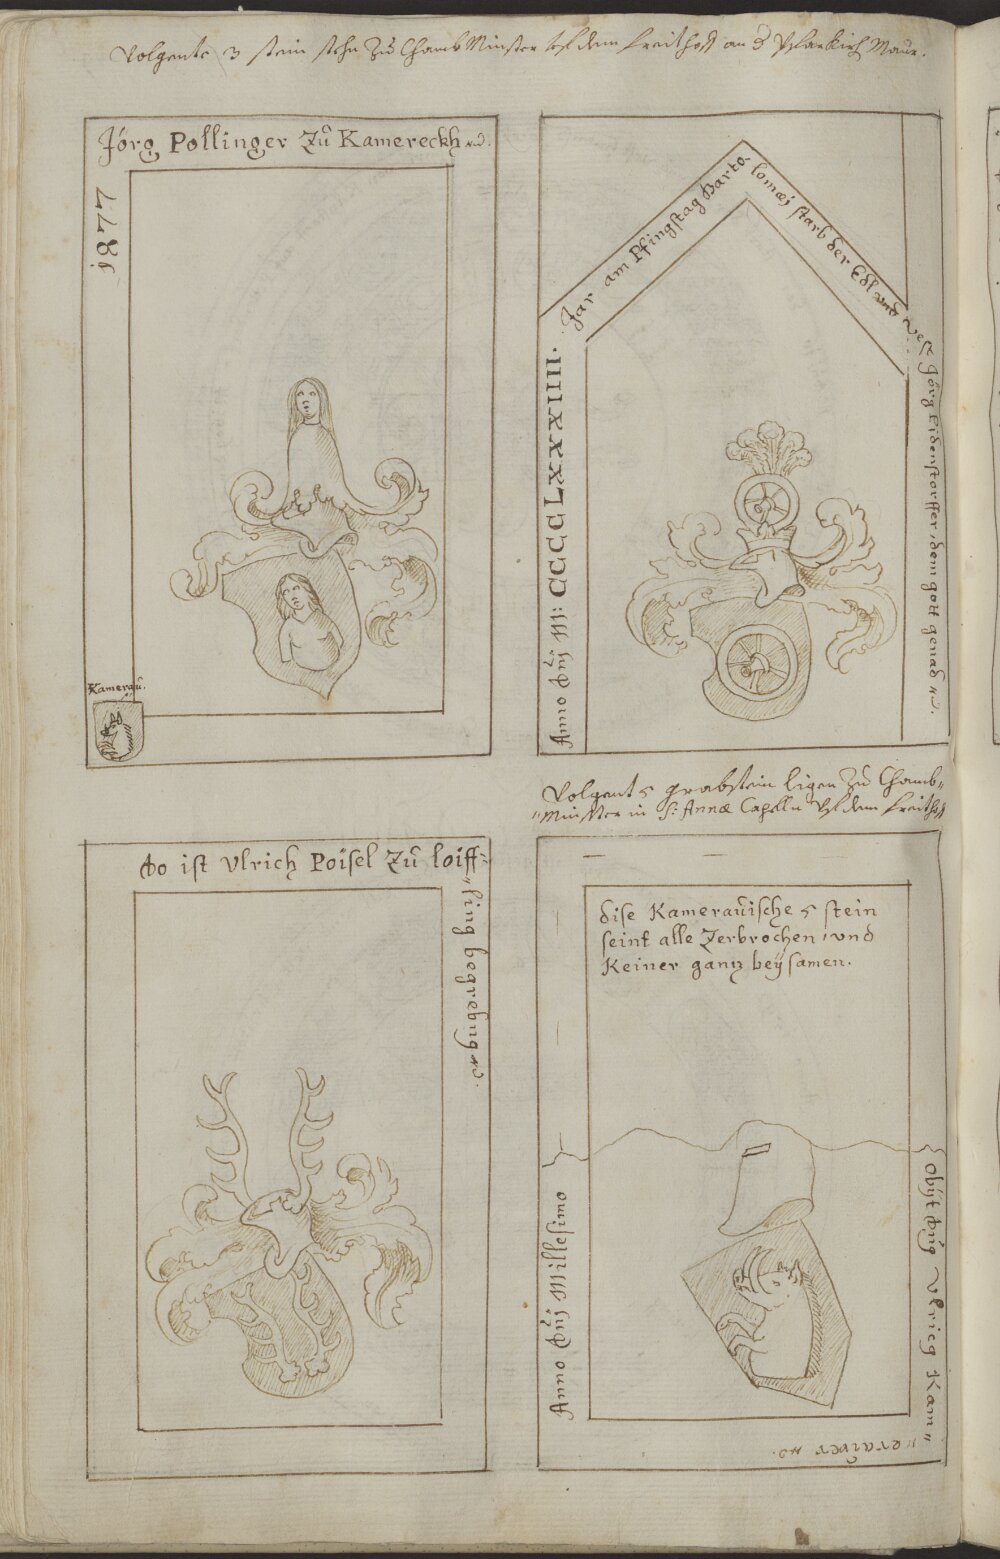 Volgente 3 stein stehn Zů Chamb Münster vf dem freithoff an d Pfarkirch Maur.
Jörg Pollinger Zů Kamereckh
1877
Kameraů.
Anno dñj M: CCCCLXXXIIII.
Jar am Pfingstag Barto-
lomæj starb der Edl vnd
Vest Jörg Eidenstorffer, dem gott genad
Volgent 5 grabstein ligen Zů Chamb„
„Münster in S: Annæ Capelln vf dem freithoff
do ist Vlrich Poisel Zů loiff„
„ling begrebng
dise Kameraůische 5 stein
seint alle Zerbrochen, vnd
Keiner gantz beÿsamen.
Anno dñj Millesimo
obÿt dñg Vlricg Kam„
„eraiver